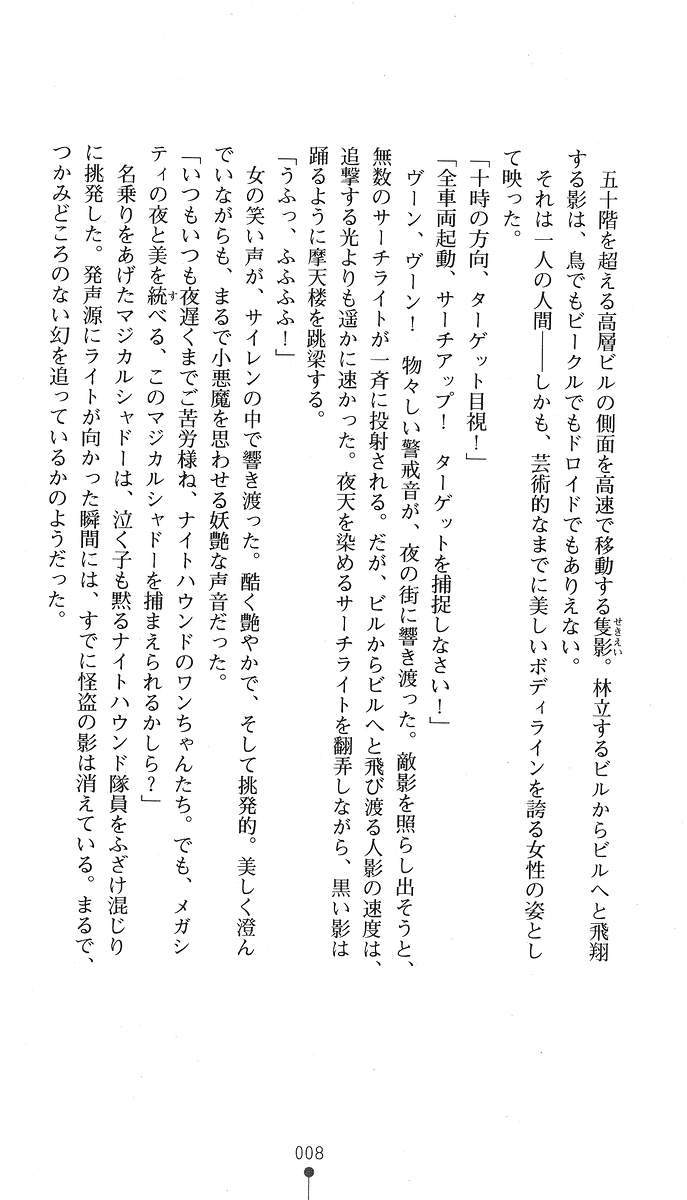 五十階を超える高層ビルの側面を高速で移動する隻影。林立するビルからビルへと飛翔
する影は、鳥でもビークルでもドロイドでもありえない。
それは一人の人間――しかも、芸術的なまでに美しいボディラインを誇る女性の姿とし
て映った。
「十時の方向、ターゲット目視！」
「全車両起動、サーチアップ！　ターゲットを捕捉しなさい！」
ヴーン、ヴーン！　物々しい警戒音が、夜の街に響き渡った。敵影を照らし出そうと、
無数のサーチライトが一斉に投射される。だが、ビルからビルへと飛び渡る人影の速度は、
追撃する光よりも遥かに速かった。夜天を染めるサーチライトを翻弄しながら、黒い影は
踊るように摩天楼を跳梁する。
「うふっ、ふふふふ！」
女の笑い声が、サイレンの中で響き渡った。酷く艶やかで、そして挑発的。美しく澄ん
でいながらも、まるで小悪魔を思わせる妖艶な声音だった。
「いつもいつも夜遅くまでご苦労様ね、ナイトハウンドのワンちゃんたち。でも、メガシ
ティの夜と美を統べる、このマジカルシャドーを捕まえられるかしら？」
名乗りをあげたマジカルシャドーは、泣く子も黙るナイトハウンド隊員をふざけ混じり
に挑発した。発声源にライトが向かった瞬間には、すでに怪盗の影は消えている。まるで、
つかみどころのない幻を追っているかのようだった。
せきえい
す
008